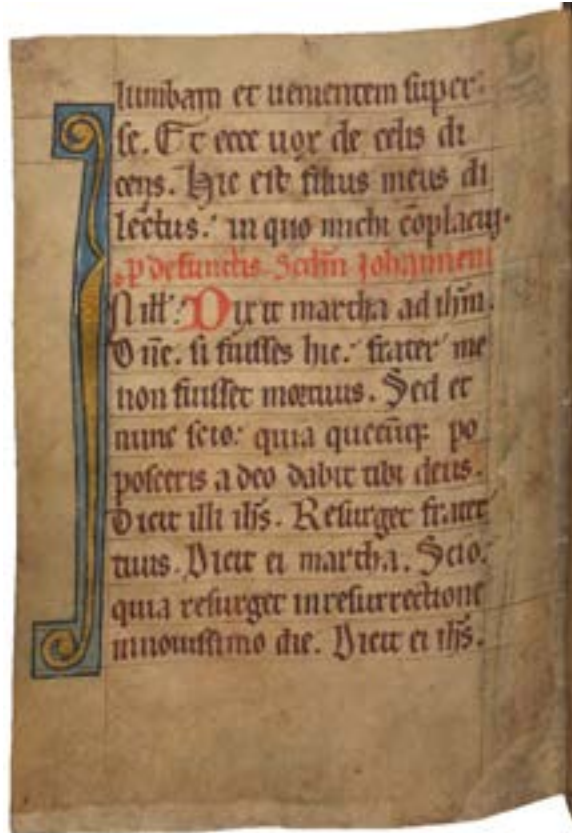 lumbam et uenientem super
se. Et ecce uox de celis di
cens. Hic est filius meus di
lectus. in quo michi cōplacuj.
p̄ defunctis. Scdm̄ Johannem
In ill'. Dixit martha ad ihm̄.
Dn̄e. si fuisses hic. frater me
non fuisset mortuus. Sed et
nunc scio. quia quecūq; po
posceris a deo dabit tibi deus.
Dicit illi ihs̄. Resurget frater
tuus. Dicit ei martha. Scio.
quia resurget in resurrectione
in nouissimo die. Dicit ei ihs̄.